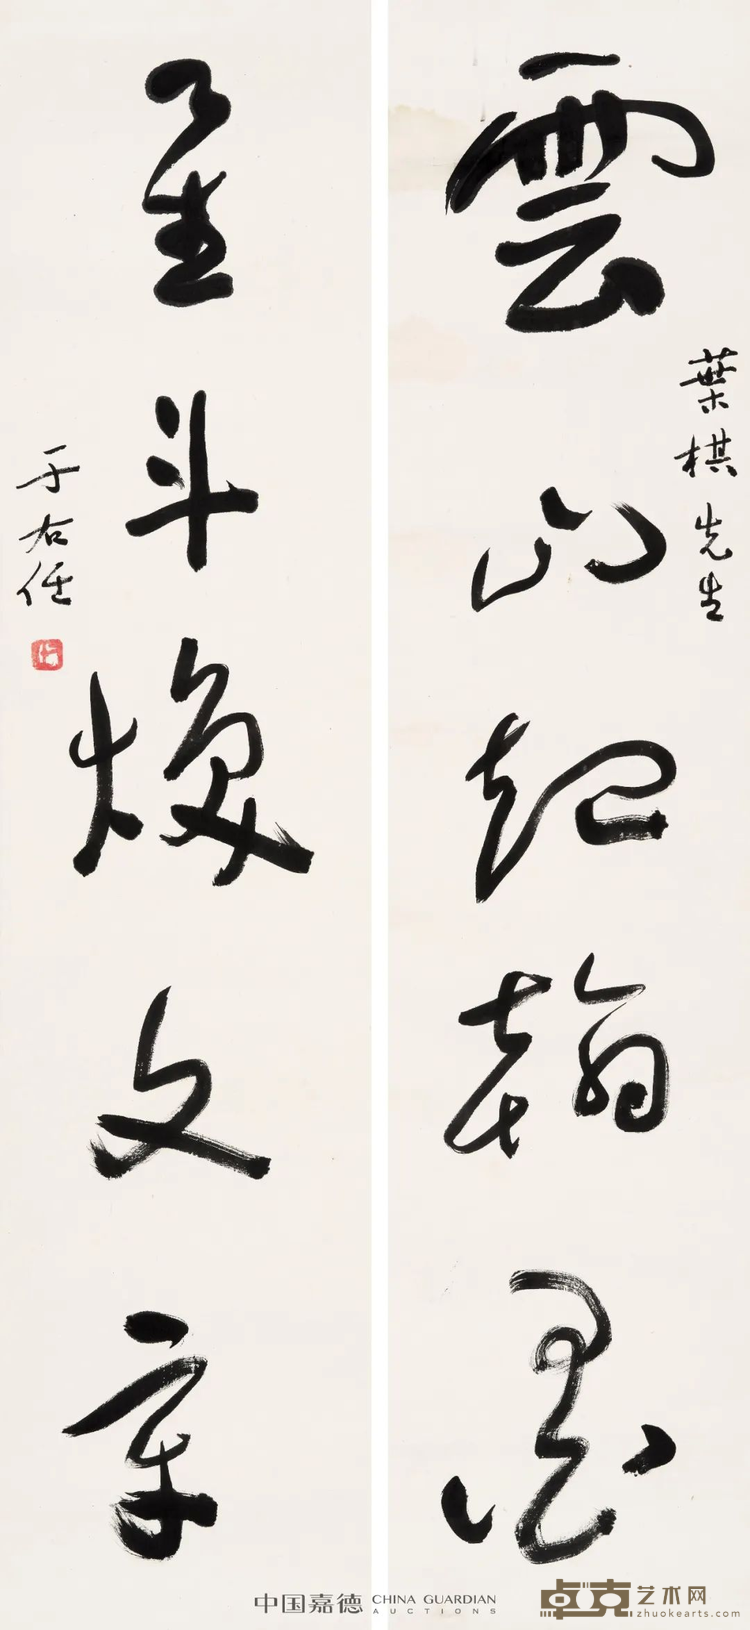 雲山起翰墨
葉棋先生
星斗煥文章
于右任
中国嘉德 CHINA GUARDIAN AUCTIONS
卓克艺术网
zhuokearts.com